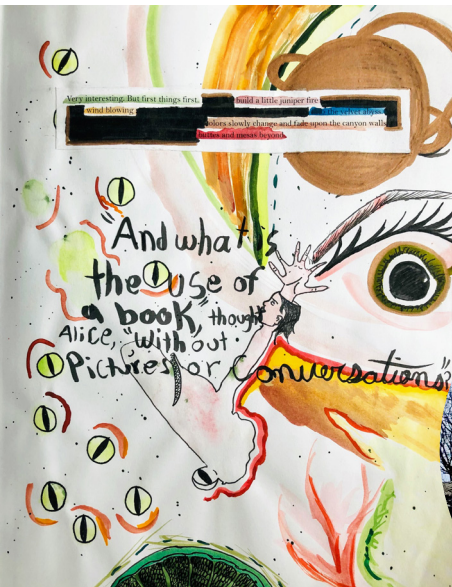 Very interesting. But first things first, build a little juniper fire
wind blowing the velvet abyss
colors slowly change and fade upon the canyon walls
buttes and mesas beyond
"And what is
the use of
a book," thought
Alice, "without
Pictures or Conversations"?